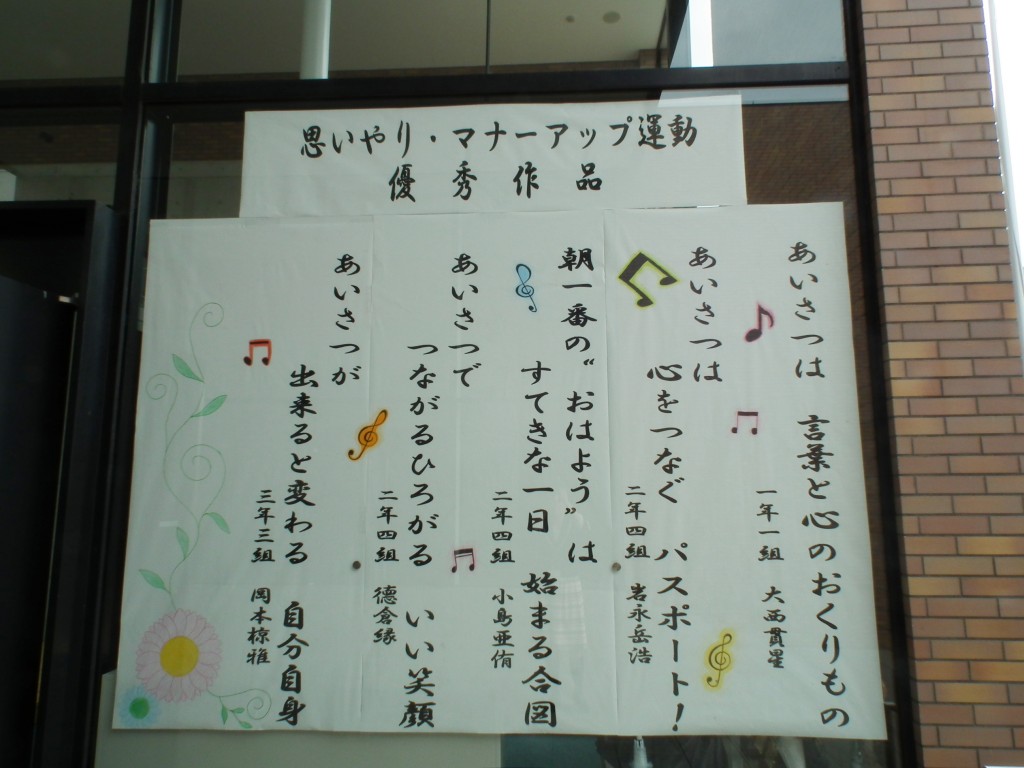 思いやり・マナーアップ運動
優秀作品
あいさつは
言葉と心のおくりもの
一年一組 大西貫星
あいさつは
心をつなぐ パスポート!
二年四組 岩永岳浩
朝一番の“おはよう”は
すてきな一日 始まる合図
二年四組 小島亜侑
あいさつで
つながるひろがる いい笑顔
二年四組 徳倉縁
あいさつが
出来ると変わる 自分自身
三年三組 岡本椋雅